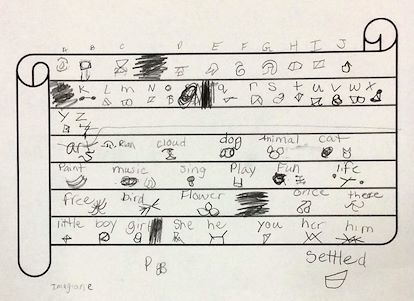 A B C D E F G H I J
K L m N o q r S t u v w x
y Z
art Rain cloud dog Animal cat
Paint music sing Play Fun life
free bird Flower once these
little boy girl she he you her him
P Settled